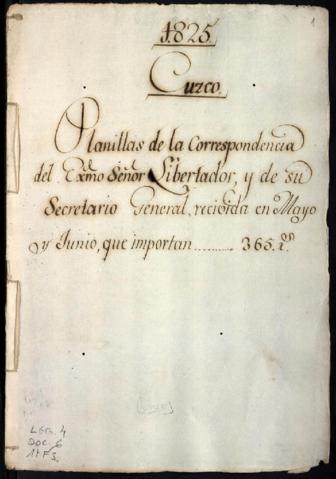 1
1825.
Cuzco.
Planillas de la Correspondencia
del Exmo Señor Libertador, y de su
Secretario General, recivida en Mayo
y Junio, que importan.......... 365.
LEG. 4
DOC. 6